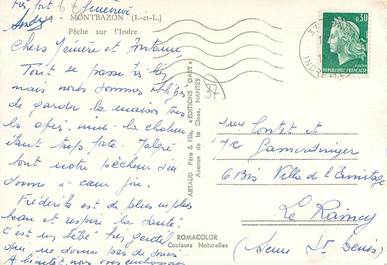 MONTBAZON (I.-et-L.)
Pêche sur l'Indre
Chers et
Tout se passe très bien
mais nous sommes obligés
de garder la maison tous
les après midi la chaleur
étant trop forte. Malgré
tout notre pêcheur s'en
donne à cœur joie.
Frédéric est de plus en plus
beau et respire la santé.
C'est un bébé très gentil
qui ne donne pas de
A bientôt, nous vous embrassons
Très fort
ARTAUD Père & Fils, EDITIONS "GABY"
Avenue de la Close, NANTES
ROMACOLOR
Couleurs Naturelles
37
0,30
REPUBLIQUE FRANÇAISE
37
INDRE
6 Bis Villa de l'Ermitage
Le Raincy
(Seine St Denis)